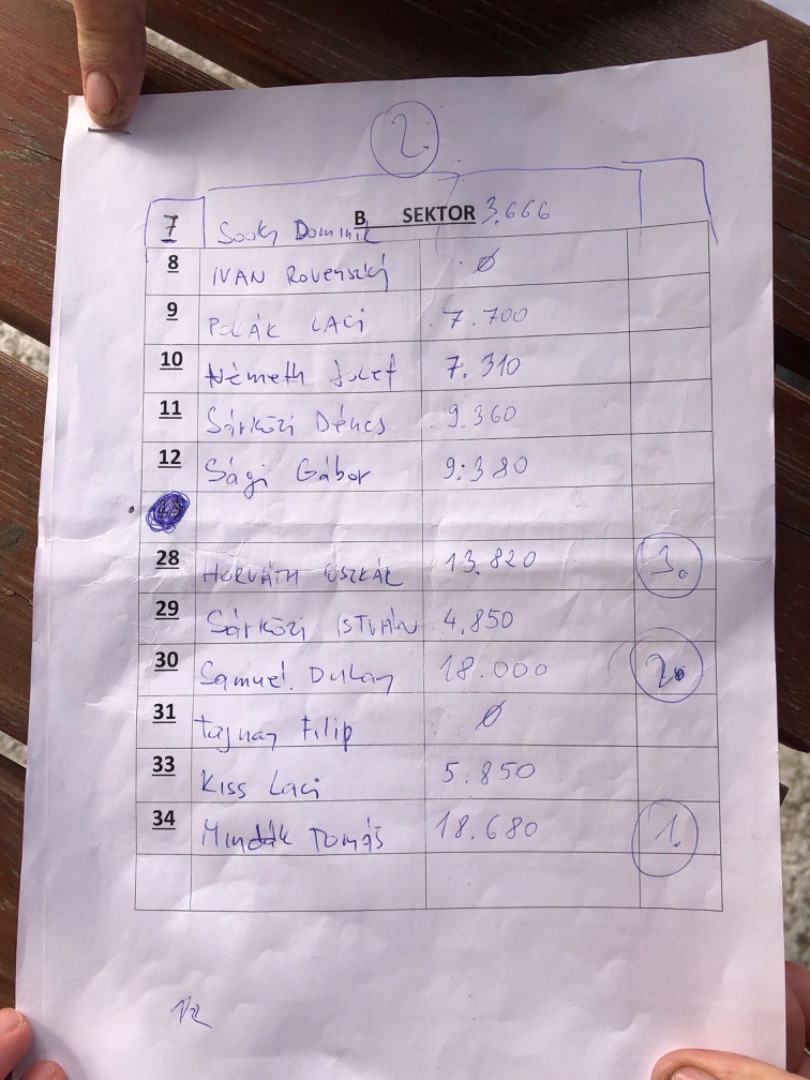 2.
B SEKTOR 3.666
7 Dominik
8 IVAN ROVENSZKÝ Ø
9 POLÁK LACI 7.700
10 Németh Jozef 7.310
11 Sárközi Dénes 9.360
12 Sági Gábor 9.380
28 HORVÁTH OSZKÁR 13.820 3.
29 Sárközi ISTVÁN 4.850
30 Samuel 18.000 2.
31 Filip Ø
33 Kiss Laci 5.850
34 Mindák Tomáš 18.680 1.